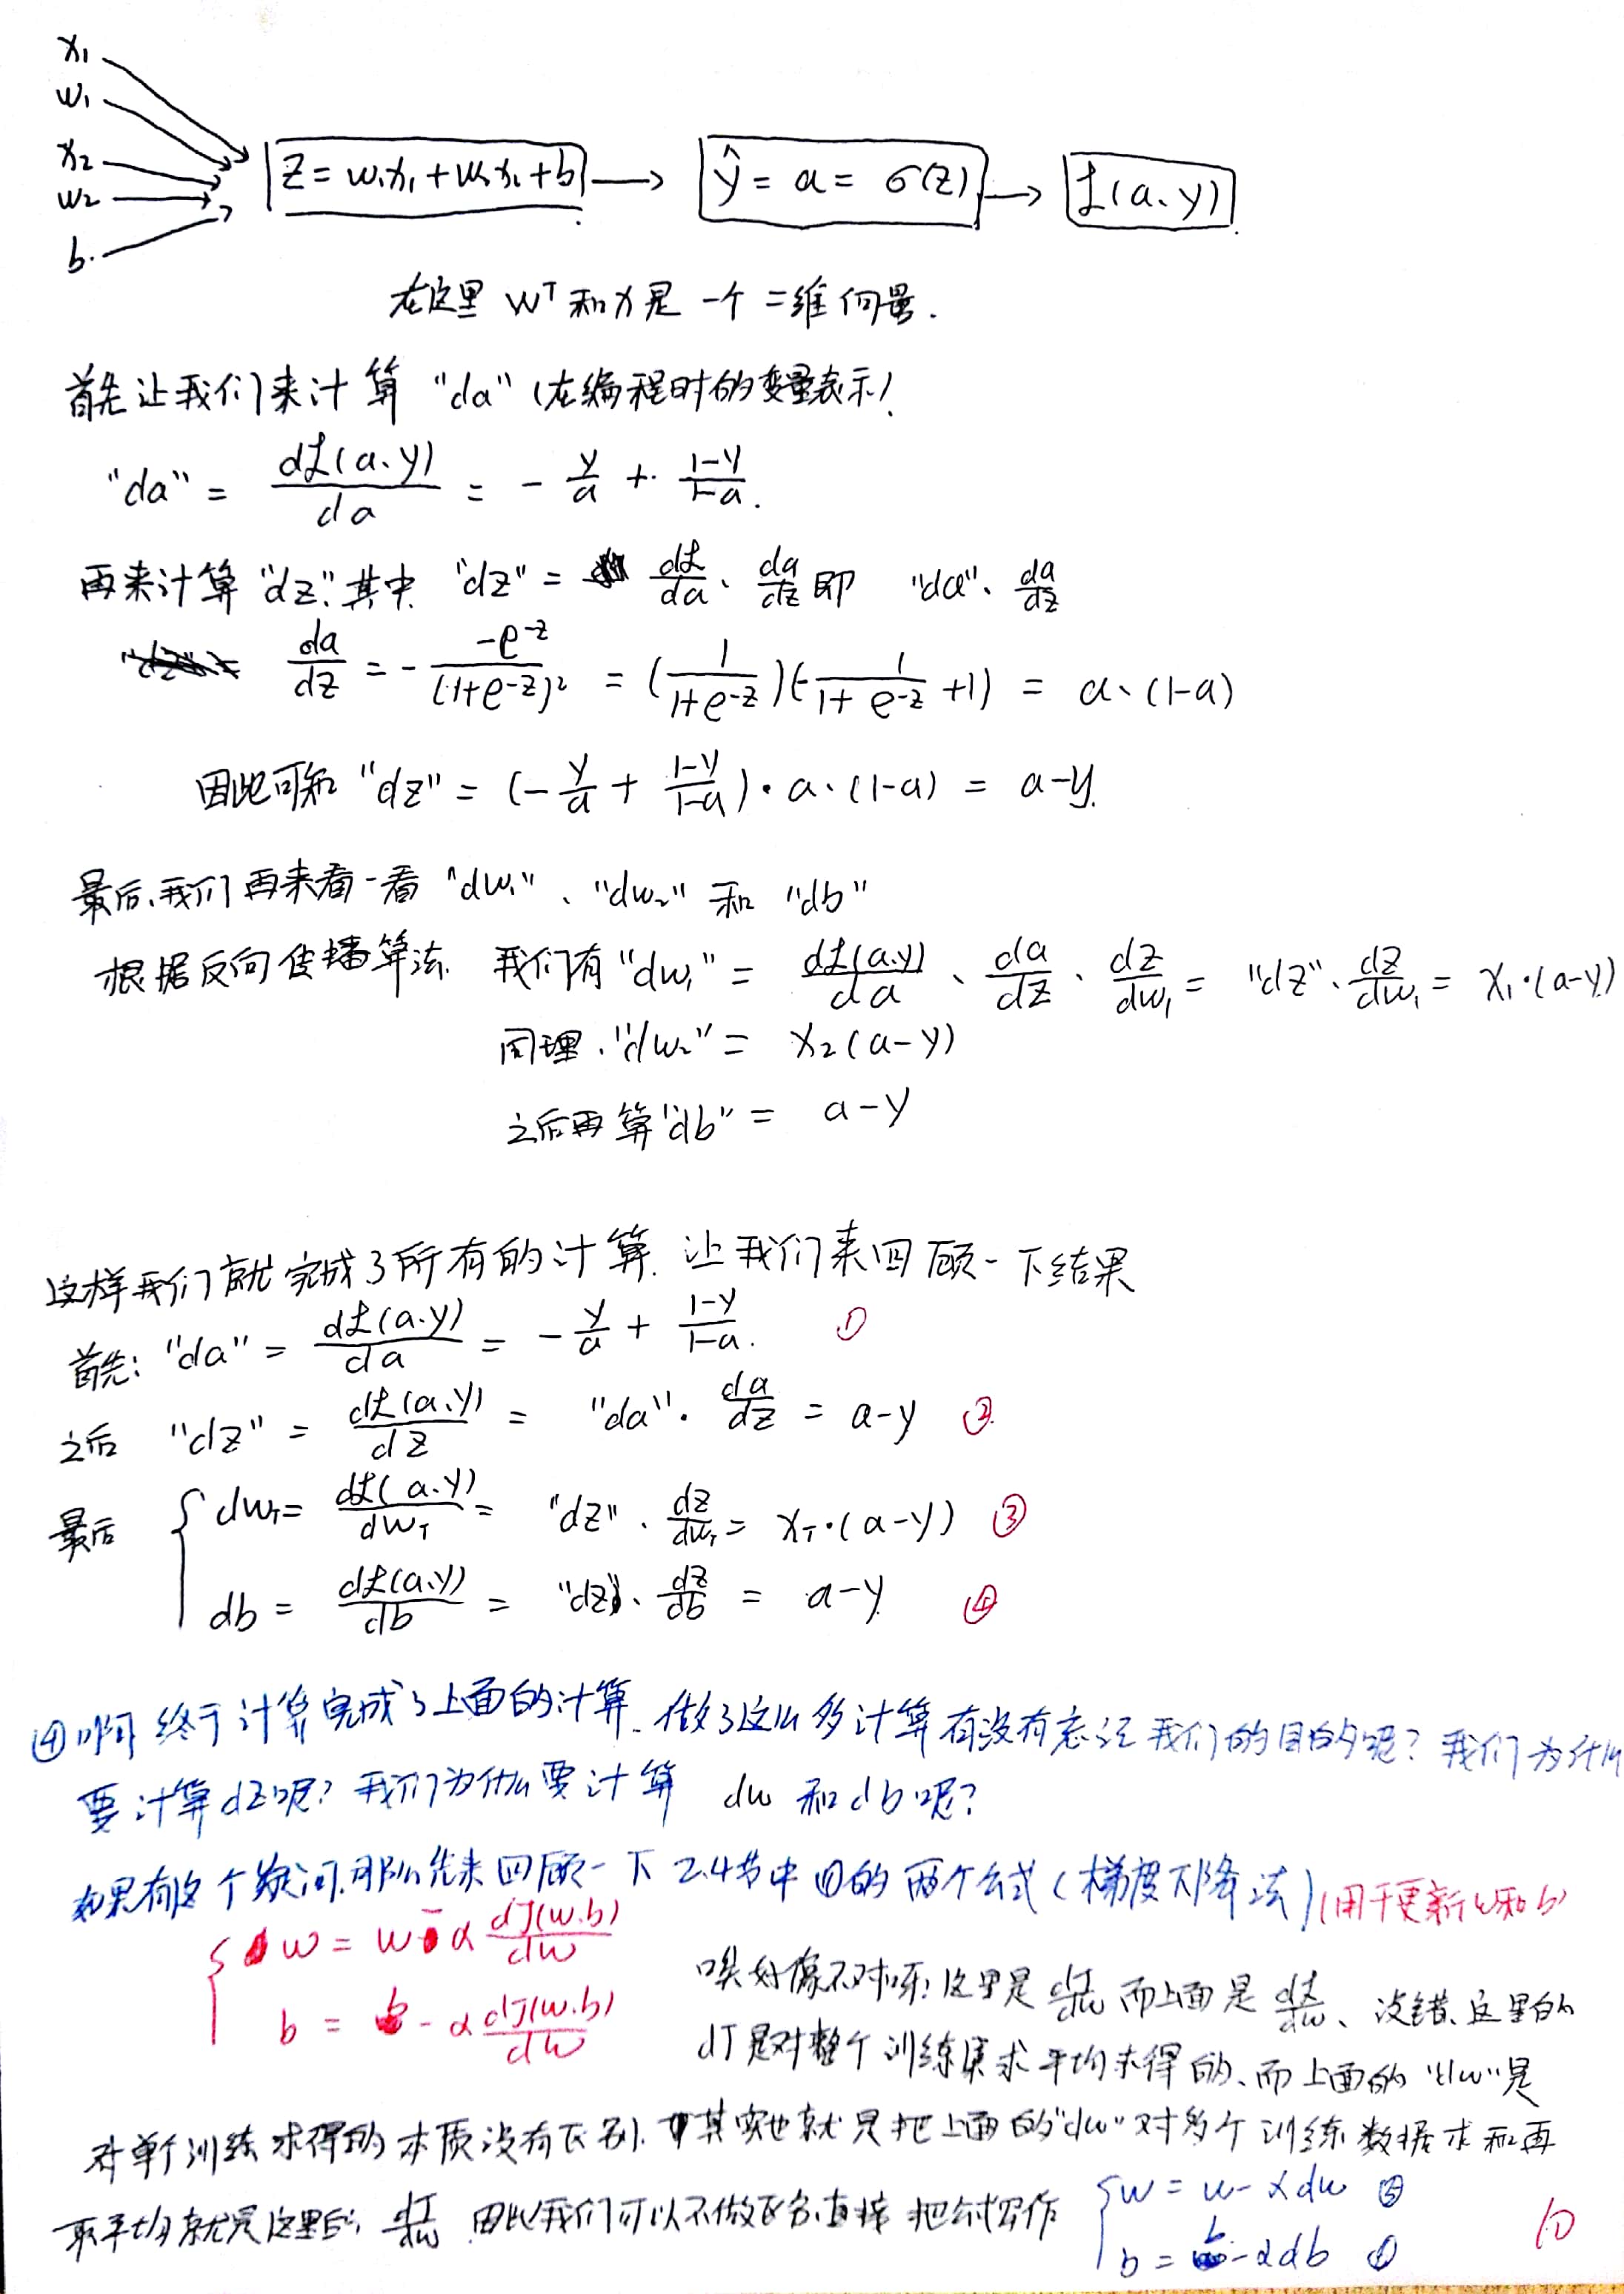 x₁
w₁
x₂
w₂
b
z = w₁x₁ + w₁x₁ + b → ŷ = a = σ(z) → ℒ(a、y)
在这里 wᵀ 和 x 是 一个 二维向量.
首先让我们来计算 "da" (在编程时的变量表示)
"da" = dℒ(a、y)/da = - y/a + (1-y)/(1-a).
再来计算 "dz". 其中 "dz" = dℒ/da · da/dz 即 "da"· da/dz
da/dz = - (-e^-z)/(1+e^-z)² = (1/(1+e^-z))(-1/(1+e^-z) +1) = a·(1-a)
因此可知 "dz" = (- y/a + (1-y)/(1-a)) · a·(1-a) = a-y.
最后、我们再来看一看 "dw₁" 、"dw₂" 和 "db"
根据反向传播算法. 我们有 "dw₁" = dℒ(a.y)/da · da/dz · dz/dw₁ = "dz"· dz/dw₁ = x₁·(a-y)
同理、"dw₂" = x₂(a-y)
之后再算 "db" = a-y
这样我们就完成了所有的计算. 让我们来回顾一下结果
首先: "da" = dℒ(a.y)/da = - y/a + (1-y)/(1-a). ①
之后 "dz" = dℒ(a、y)/dz = "da"· da/dz = a-y ②
最后 { dw_T = dℒ(a、y)/dw_T = "dz"· dz/dw_T = x_T·(a-y) ③
db = dℒ(a、y)/db = "dz"· dz/db = a-y ④
④ 啊 终于计算完成了上面的计算. 做了这么多计算有没有忘记我们的目的呢? 我们为什么
要计算dz呢? 我们为什么要计算 dw 和 db 呢?
如果有这个疑问. 那么先来回顾一下 2.4节中 ①的 两个公式 (梯度下降法) (用于更新w和b)
{ w = w - α dJ(w.b)/dw
b = b - α dJ(w.b)/dw
唉好像不对呀! 这里是 dJ/dw 而上面是 dℒ/dw、没错、这里的
dJ 是对整个训练集求平均求得的、而上面的 "dw" 是
对单个训练求得的 本质没有区别. 其实也就是把上面的"dw"对多个训练数据求和再
取平均 就是这里的 dJ/dw 因此我们可以不做区分直接把公式写作 { w = w - α dw ⑤
b = b - α db ⑥
10